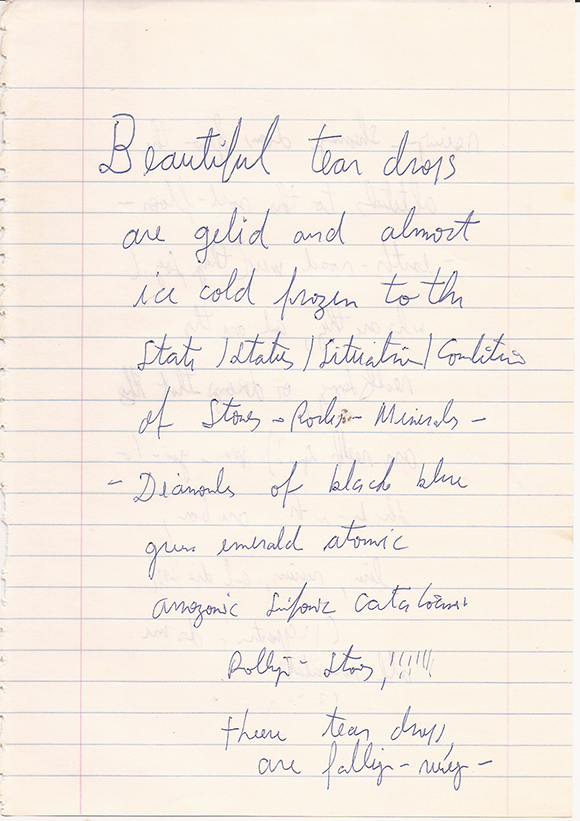 Beautiful tear drops
are gelid and almost
ice cold frozen to the
State / States / Situation / Condition
of Stones - Rocks - Minerals -
- Diamonds of black blue
green emerald atomic
amazonic
Stones, !!!!!!
these tear drops,
are falling -